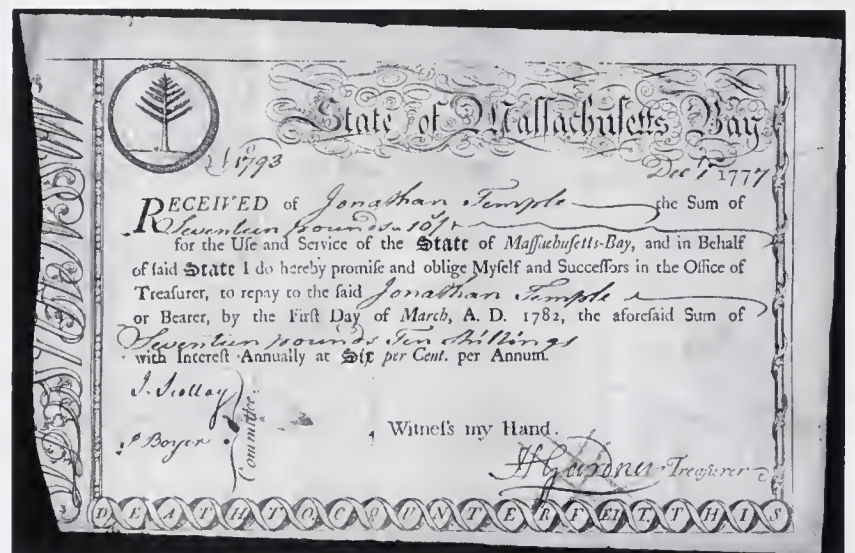 State of Massachusetts Bay
No 1793
Decr 1st 1777
RECEIVED of Jonathan Temple the Sum of
Seventeen pounds 10/
for the Uſe and Service of the State of Maſſachuſetts-Bay, and in Behalf
of ſaid State I do hereby promiſe and oblige Myſelf and Succeſſors in the Office of
Treaſurer, to repay to the ſaid Jonathan Temple
or Bearer, by the Firſt Day of March, A. D. 1782, the aforeſaid Sum of
Seventeen pounds Ten shillings
with Intereſt Annually at Six per Cent. per Annum.
J. Scollay
P Boyer
Committee.
Witneſs my Hand.
H Gardner Treasurer
DEATH TO COUNTERFEIT THIS